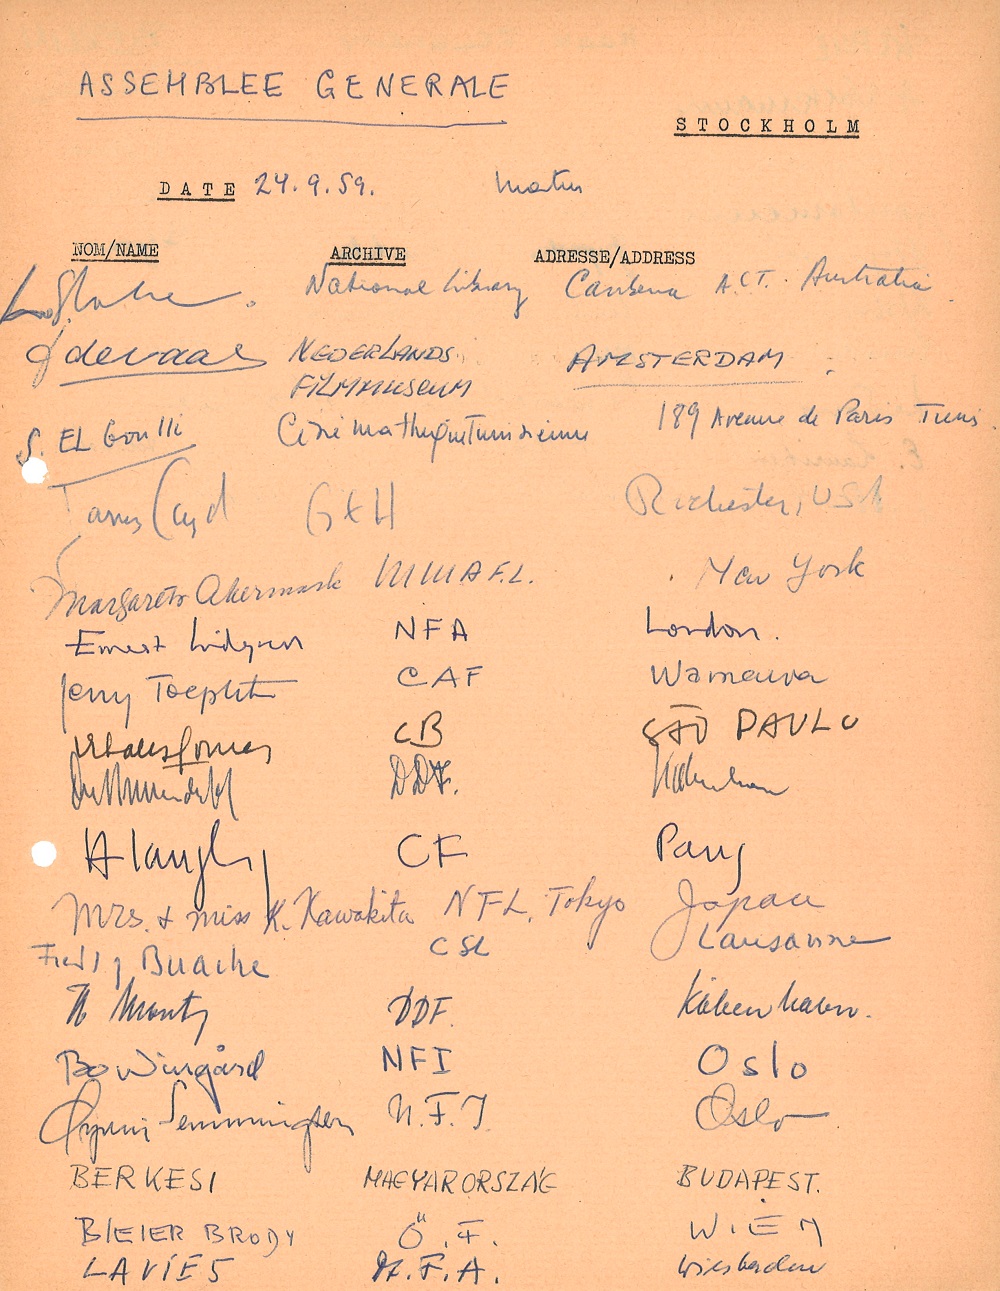 ASSEMBLEE GENERALE
STOCKHOLM
DATE 24.9.59.
NOM/NAME ARCHIVE ADRESSE/ADDRESS
National Library Canberra A.C.T. Australia
J de vaal NEDERLANDS FILMMUSEUM AMSTERDAM
S. EL Goulli Cinémathèque Tunisienne 189 Avenue de Paris Tunis
James Card GEH Rochester, USA
Margareta Akermark MMAFL. New York
Ernest Lindgren NFA London.
Jerzy Toeplitz CAF Warszawa
CB SÃO PAULO
DDF. København
H Langlois CF Paris
Mrs. & Miss K. Kawakita NFL, Tokyo Japan
Freddy Buache CSL Lausanne
Monty DDF. København.
Bo Wingård NFI Oslo
Semmingsen N.F.I. Oslo
BERKESI MAGYARORSZÁG BUDAPEST.
BLEIER BRODY Ö.F. WIEN
LAVIES Wiesbaden